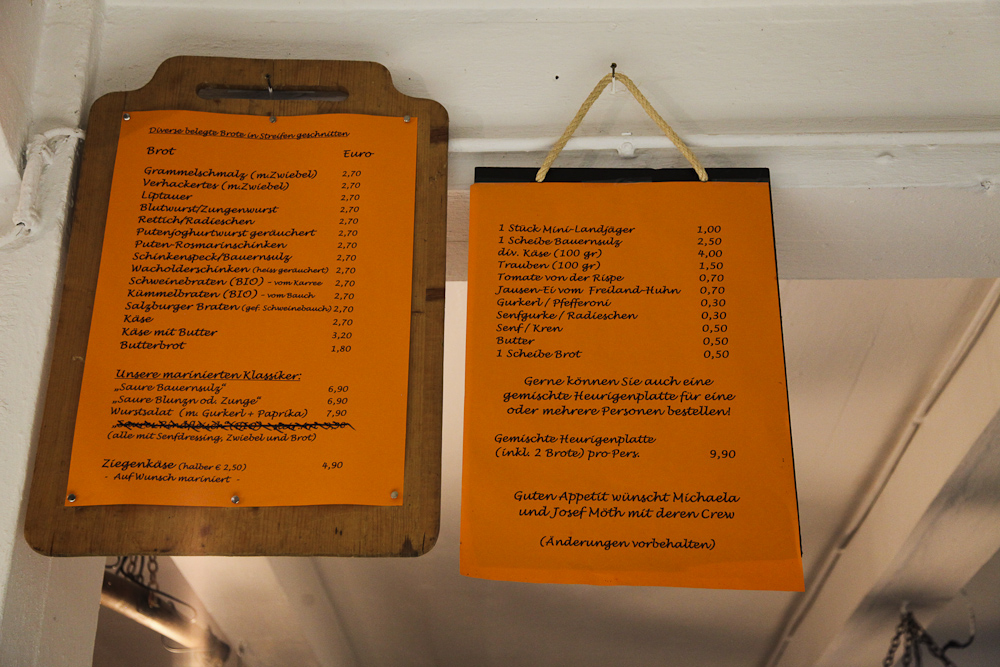 Diverse belegte Brote in Streifen geschnitten
Brot Euro
Grammelschmalz (m.Zwiebel) 2,70
Verhackertes (m.Zwiebel) 2,70
Liptauer 2,70
Blutwurst/Zungenwurst 2,70
Rettich/Radieschen 2,70
Putenjoghurtwurst geräuchert 2,70
Puten-Rosmarinschinken 2,70
Schinkenspeck/Bauernsulz 2,70
Wacholderschinken (heiss geräuchert) 2,70
Schweinebraten (BIO) - vom Karree 2,70
Kümmelbraten (BIO) - vom Bauch 2,70
Salzburger Braten (gef. Schweinebauch) 2,70
Käse 2,70
Käse mit Butter 3,20
Butterbrot 1,80
Unsere marinierten Klassiker:
„Saure Bauernsulz" 6,90
„Saure Blunzn od. Zunge" 6,90
Wurstsalat (m. Gurkerl + Paprika) 7,90
(alle mit Senfdressing, Zwiebel und Brot)
Ziegenkäse (halber € 2,50) 4,90
- Auf Wunsch mariniert -
1 Stück Mini-Landjäger 1,00
1 Scheibe Bauernsulz 2,50
div. Käse (100 gr) 4,00
Trauben (100 gr) 1,50
Tomate von der Rispe 0,70
Jausen-Ei vom Freiland-Huhn 0,70
Gurkerl / Pfefferoni 0,30
Senfgurke / Radieschen 0,30
Senf / Kren 0,50
Butter 0,50
1 Scheibe Brot 0,50
Gerne können Sie auch eine
gemischte Heurigenplatte für eine
oder mehrere Personen bestellen!
Gemischte Heurigenplatte
(inkl. 2 Brote) pro Pers. 9,90
Guten Appetit wünscht Michaela
und Josef Möth mit deren Crew
(Änderungen vorbehalten)